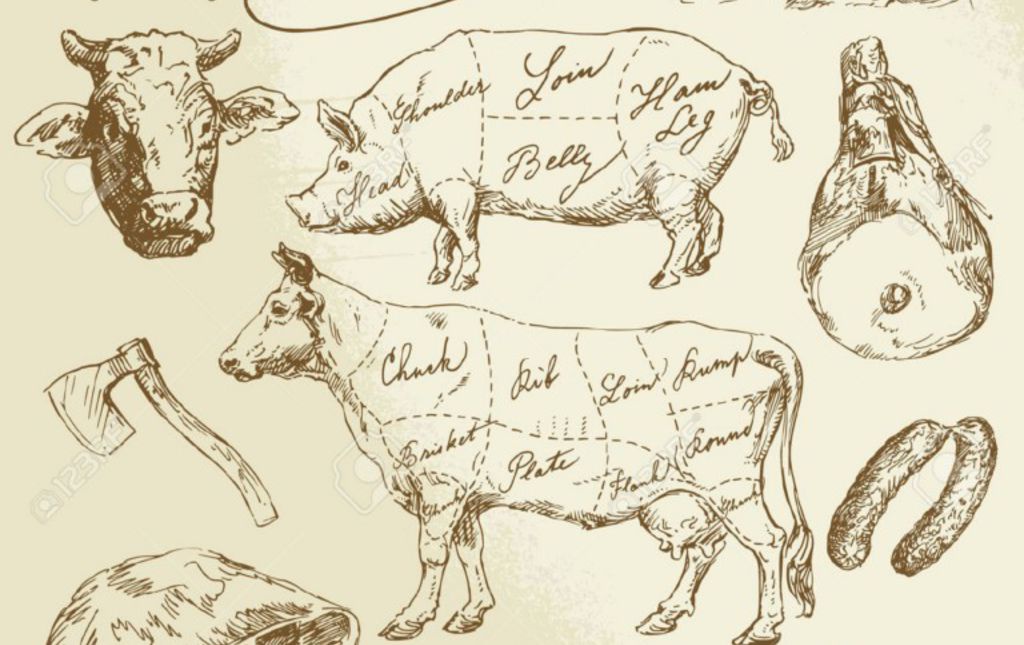 Shoulder
Loin
Ham
Leg
Head
Belly
Chuck
Rib
Loin
Rump
Brisket
Plate
Flank
Round
Shank
123RF